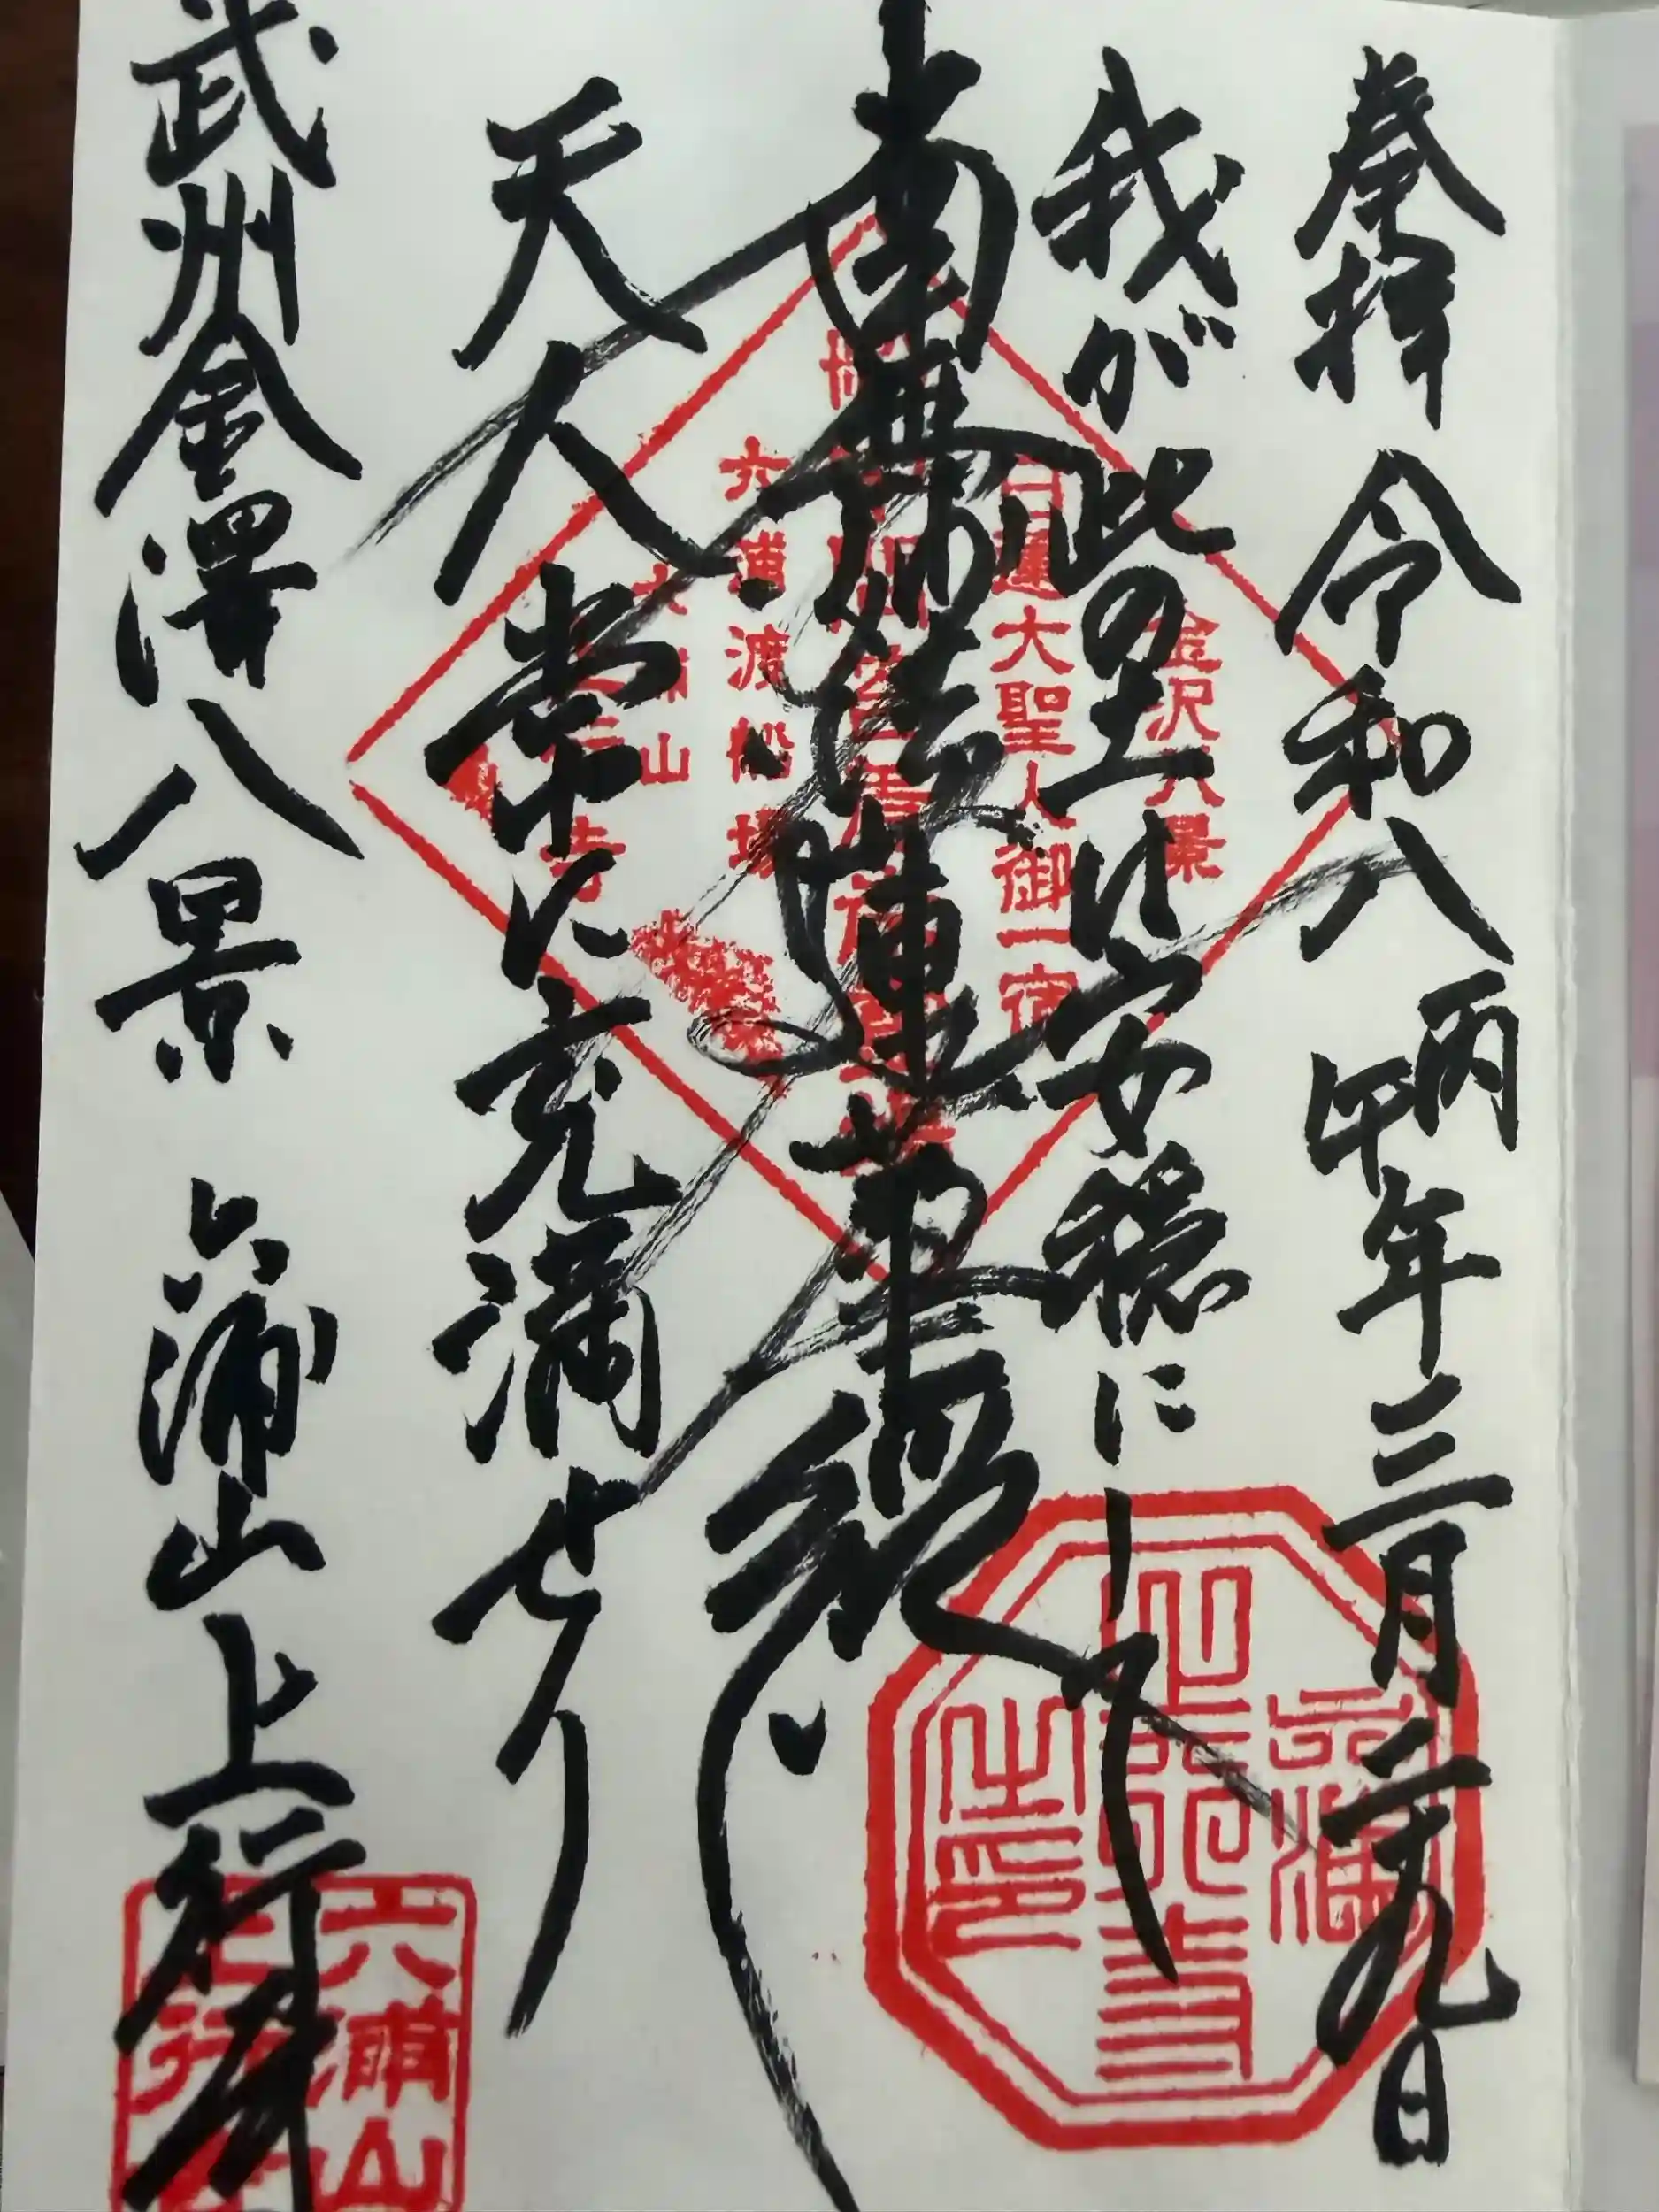 奉拝 令和八丙午年三月二十九日
我が此の土は安穏にして
南無妙法蓮華経
天人常に充満せり
武州金澤八景 六浦山上行寺
金沢八景
日蓮大聖人御一宿
六浦渡船場
六浦山
上行寺
六浦
上行寺
之印
六浦山
上行寺